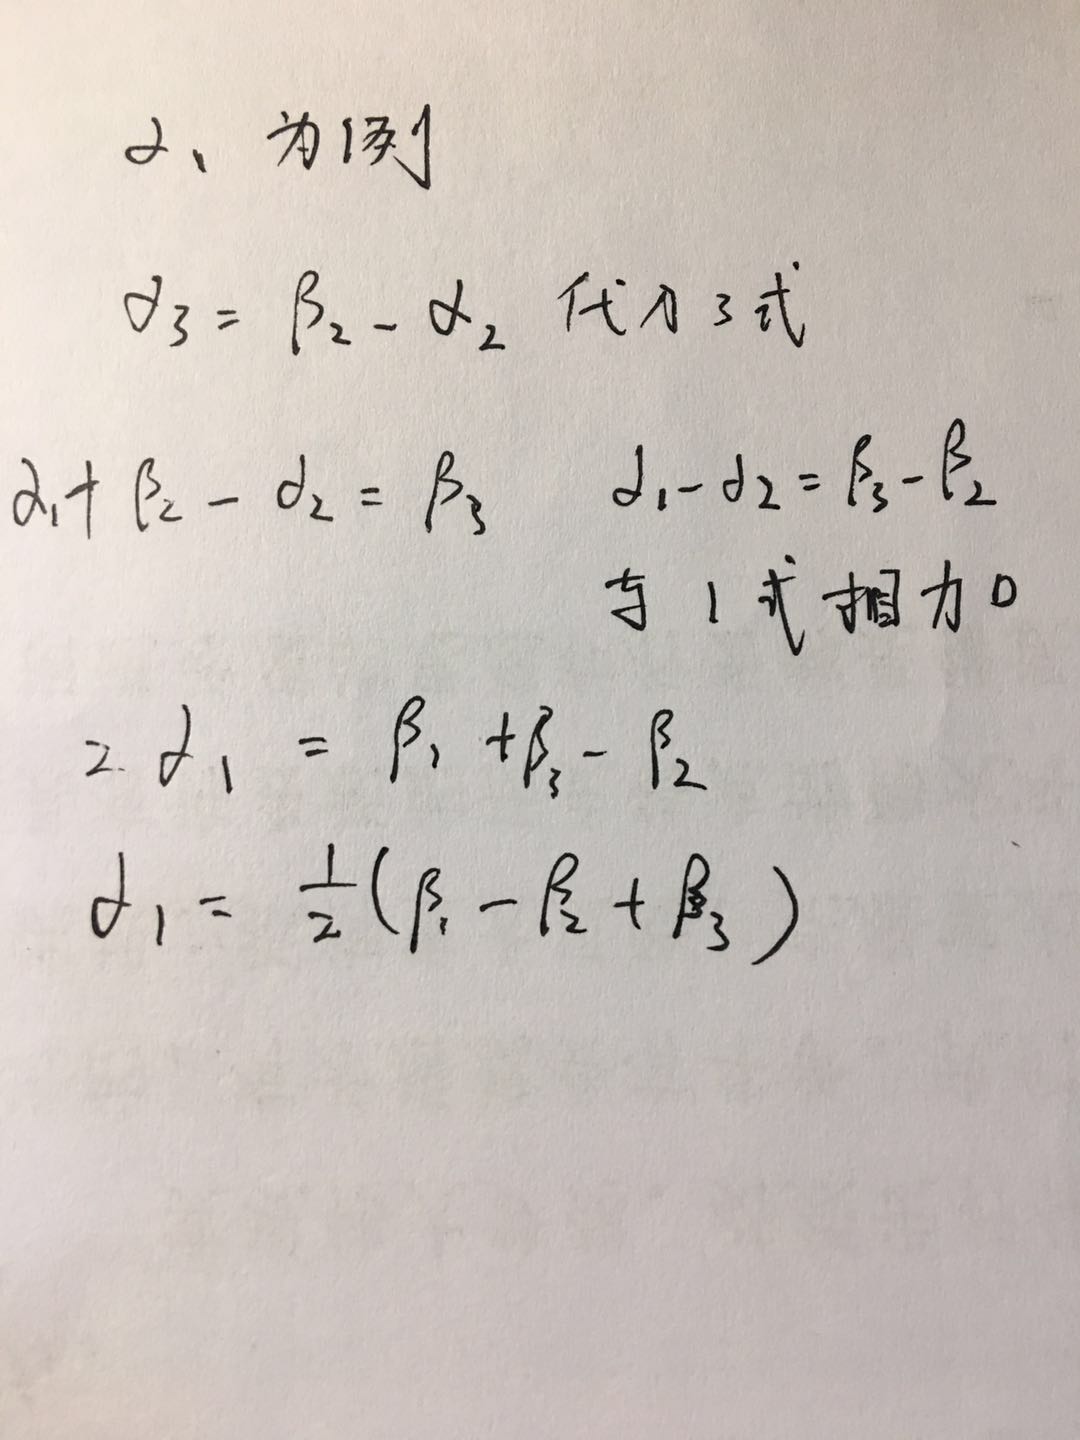 α₁ 为例
α₃ = β₂ - α₂ 代入3式
α₁ + β₂ - α₂ = β₃ α₁ - α₂ = β₃ - β₂
与1式相加
2α₁ = β₁ + β₃ - β₂
α₁ = ½(β₁ - β₂ + β₃)